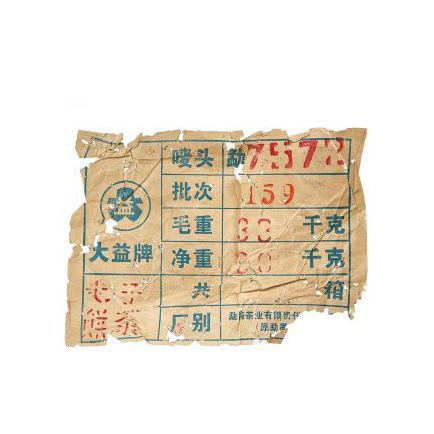 唛头 勐7572
批次 159
毛重 33 千克
大益牌 净重 千克
七子 共 箱
饼茶 厂别 勐海茶业有限责任
(原勐